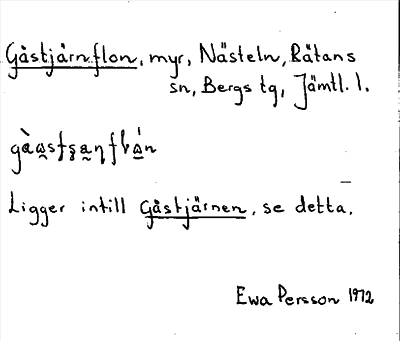 Gåstjärnflon, myr, Nästeln, Råtans
sn, Bergs tg, Jämtl. l.
Ligger intill Gåstjärnen, se detta.
Ewa Persson 1972